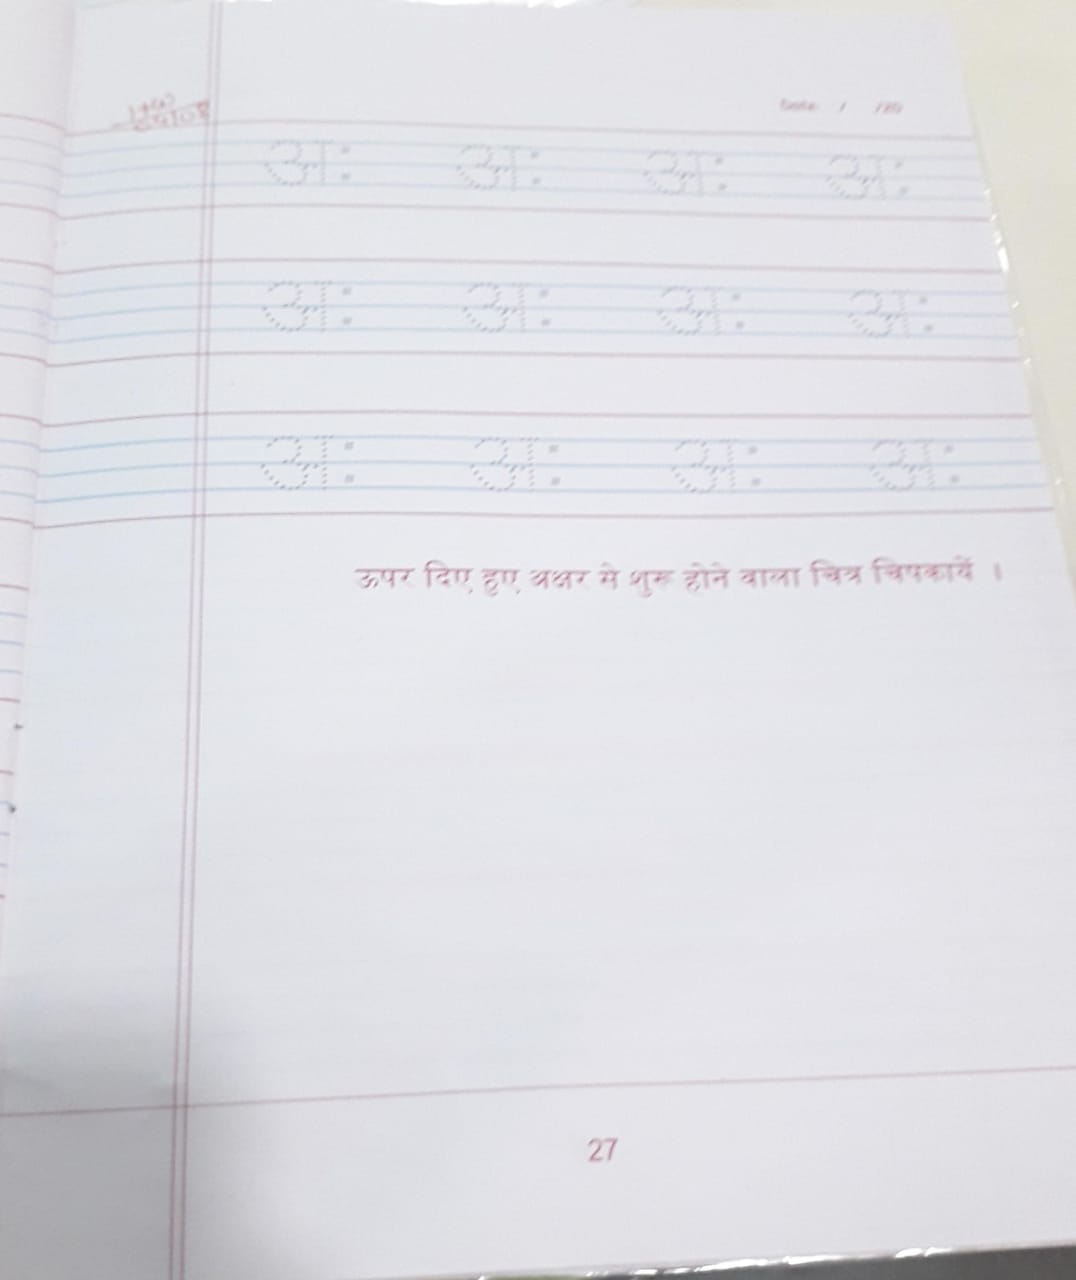 Date / /20
अः अः अः अः
अः अः अः अः
अः अः अः अः
ऊपर दिए हुए अक्षर से शुरू होने वाला चित्र चिपकायें ।
27